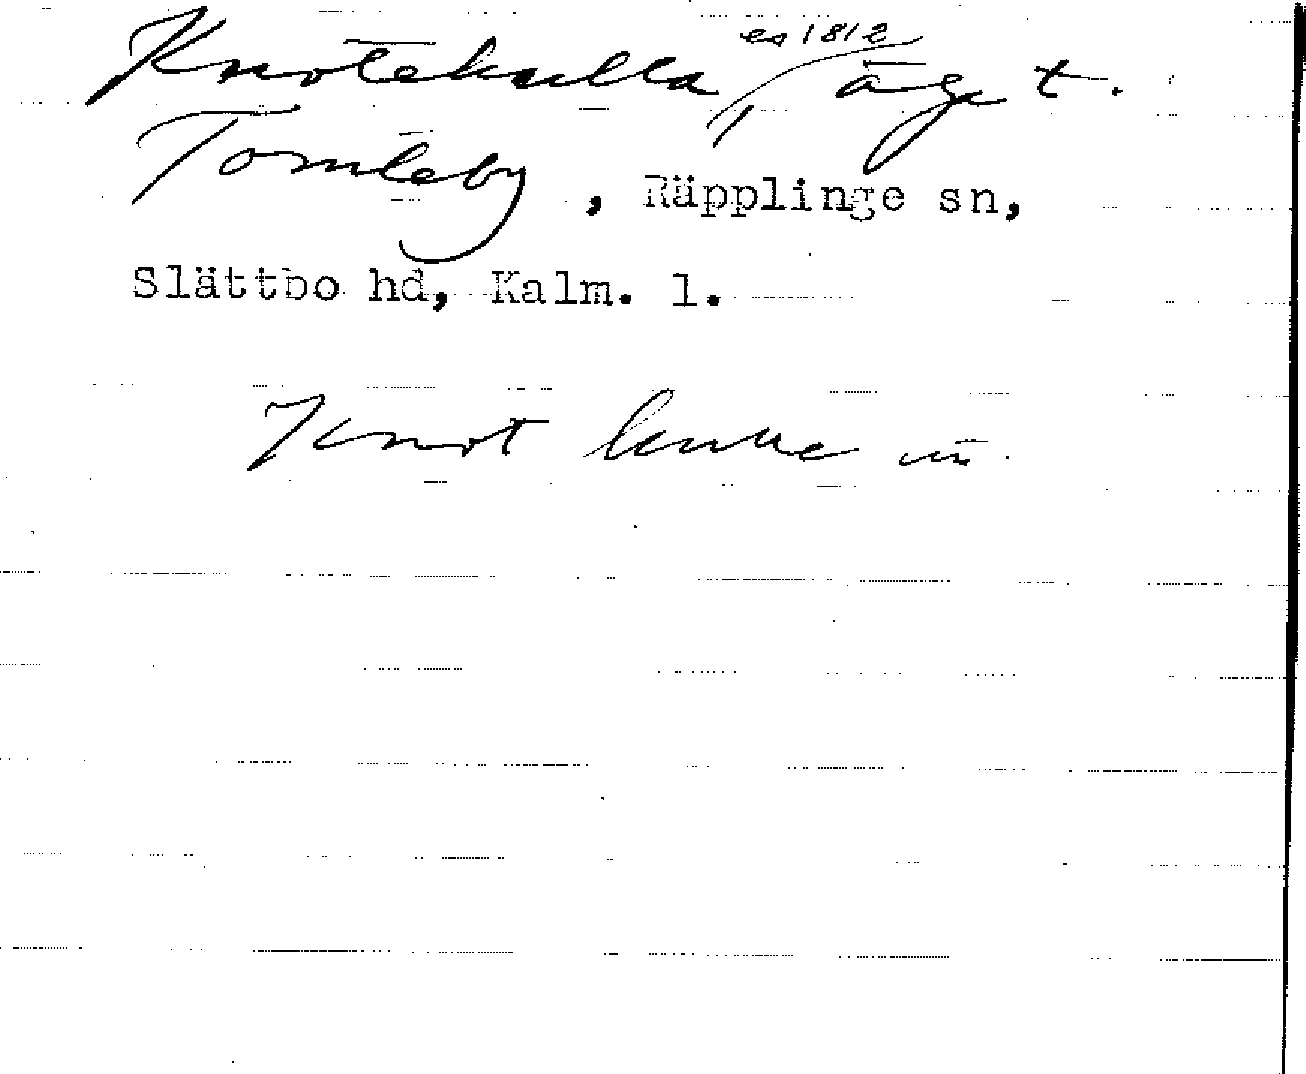 Knotekulla ca 1812 äga t.
Tomteby, Räpplinge sn,
Slättbo hd, Kalm. l.
Knot